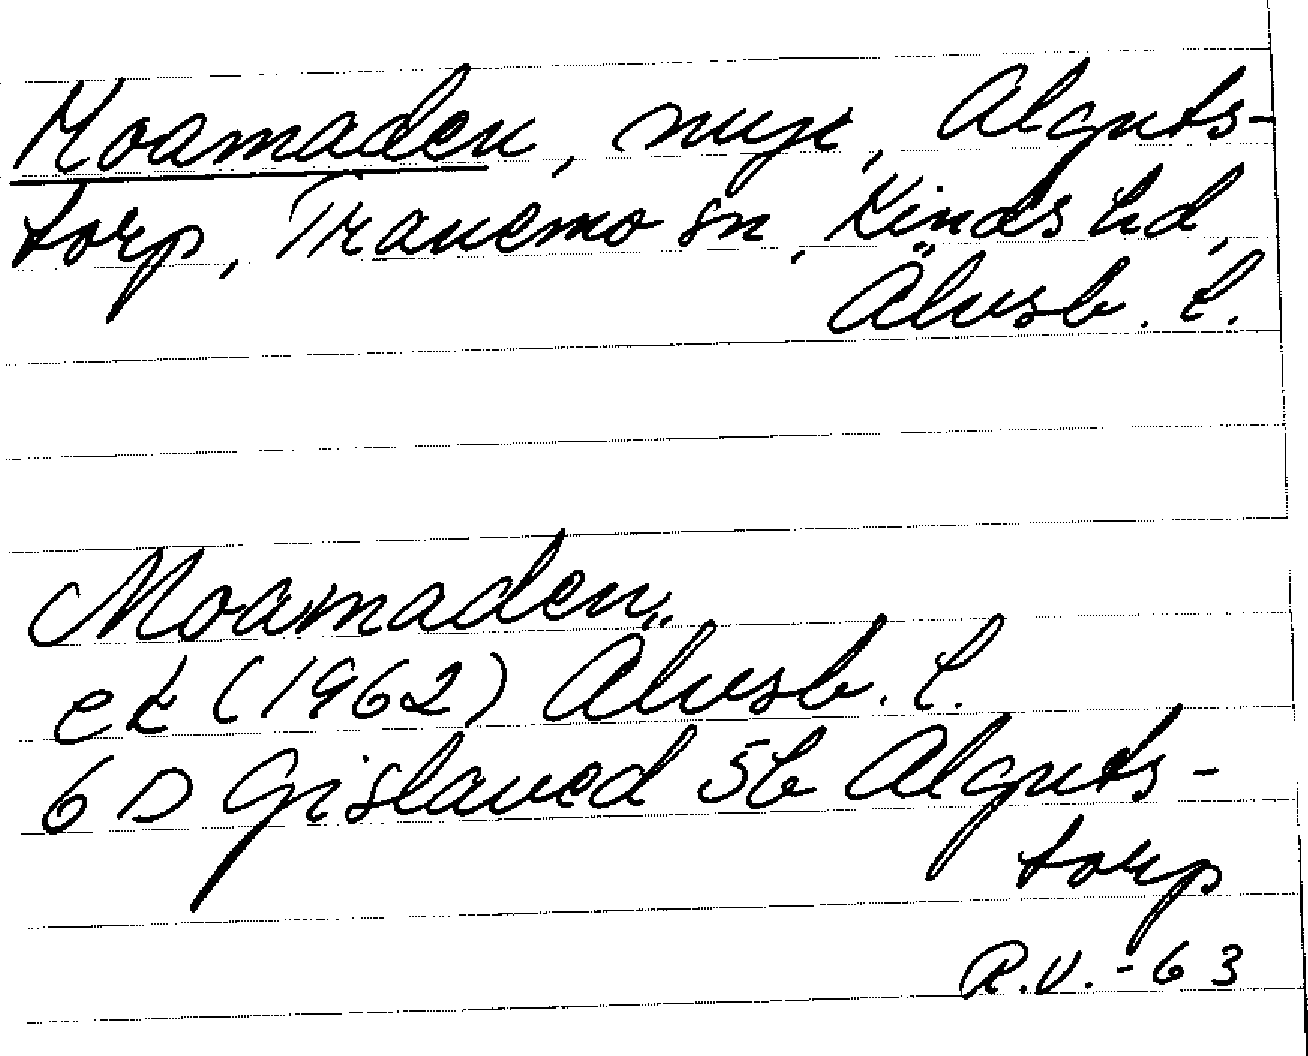 Moamaden, myr, Alguts-
torp, Tranemo sn, Kinds hd,
Älvsb. l.
Moamaden
ek (1962) Älvsb. l.
6 D Gislaved 5b Alguts-
torp
R.V. -63